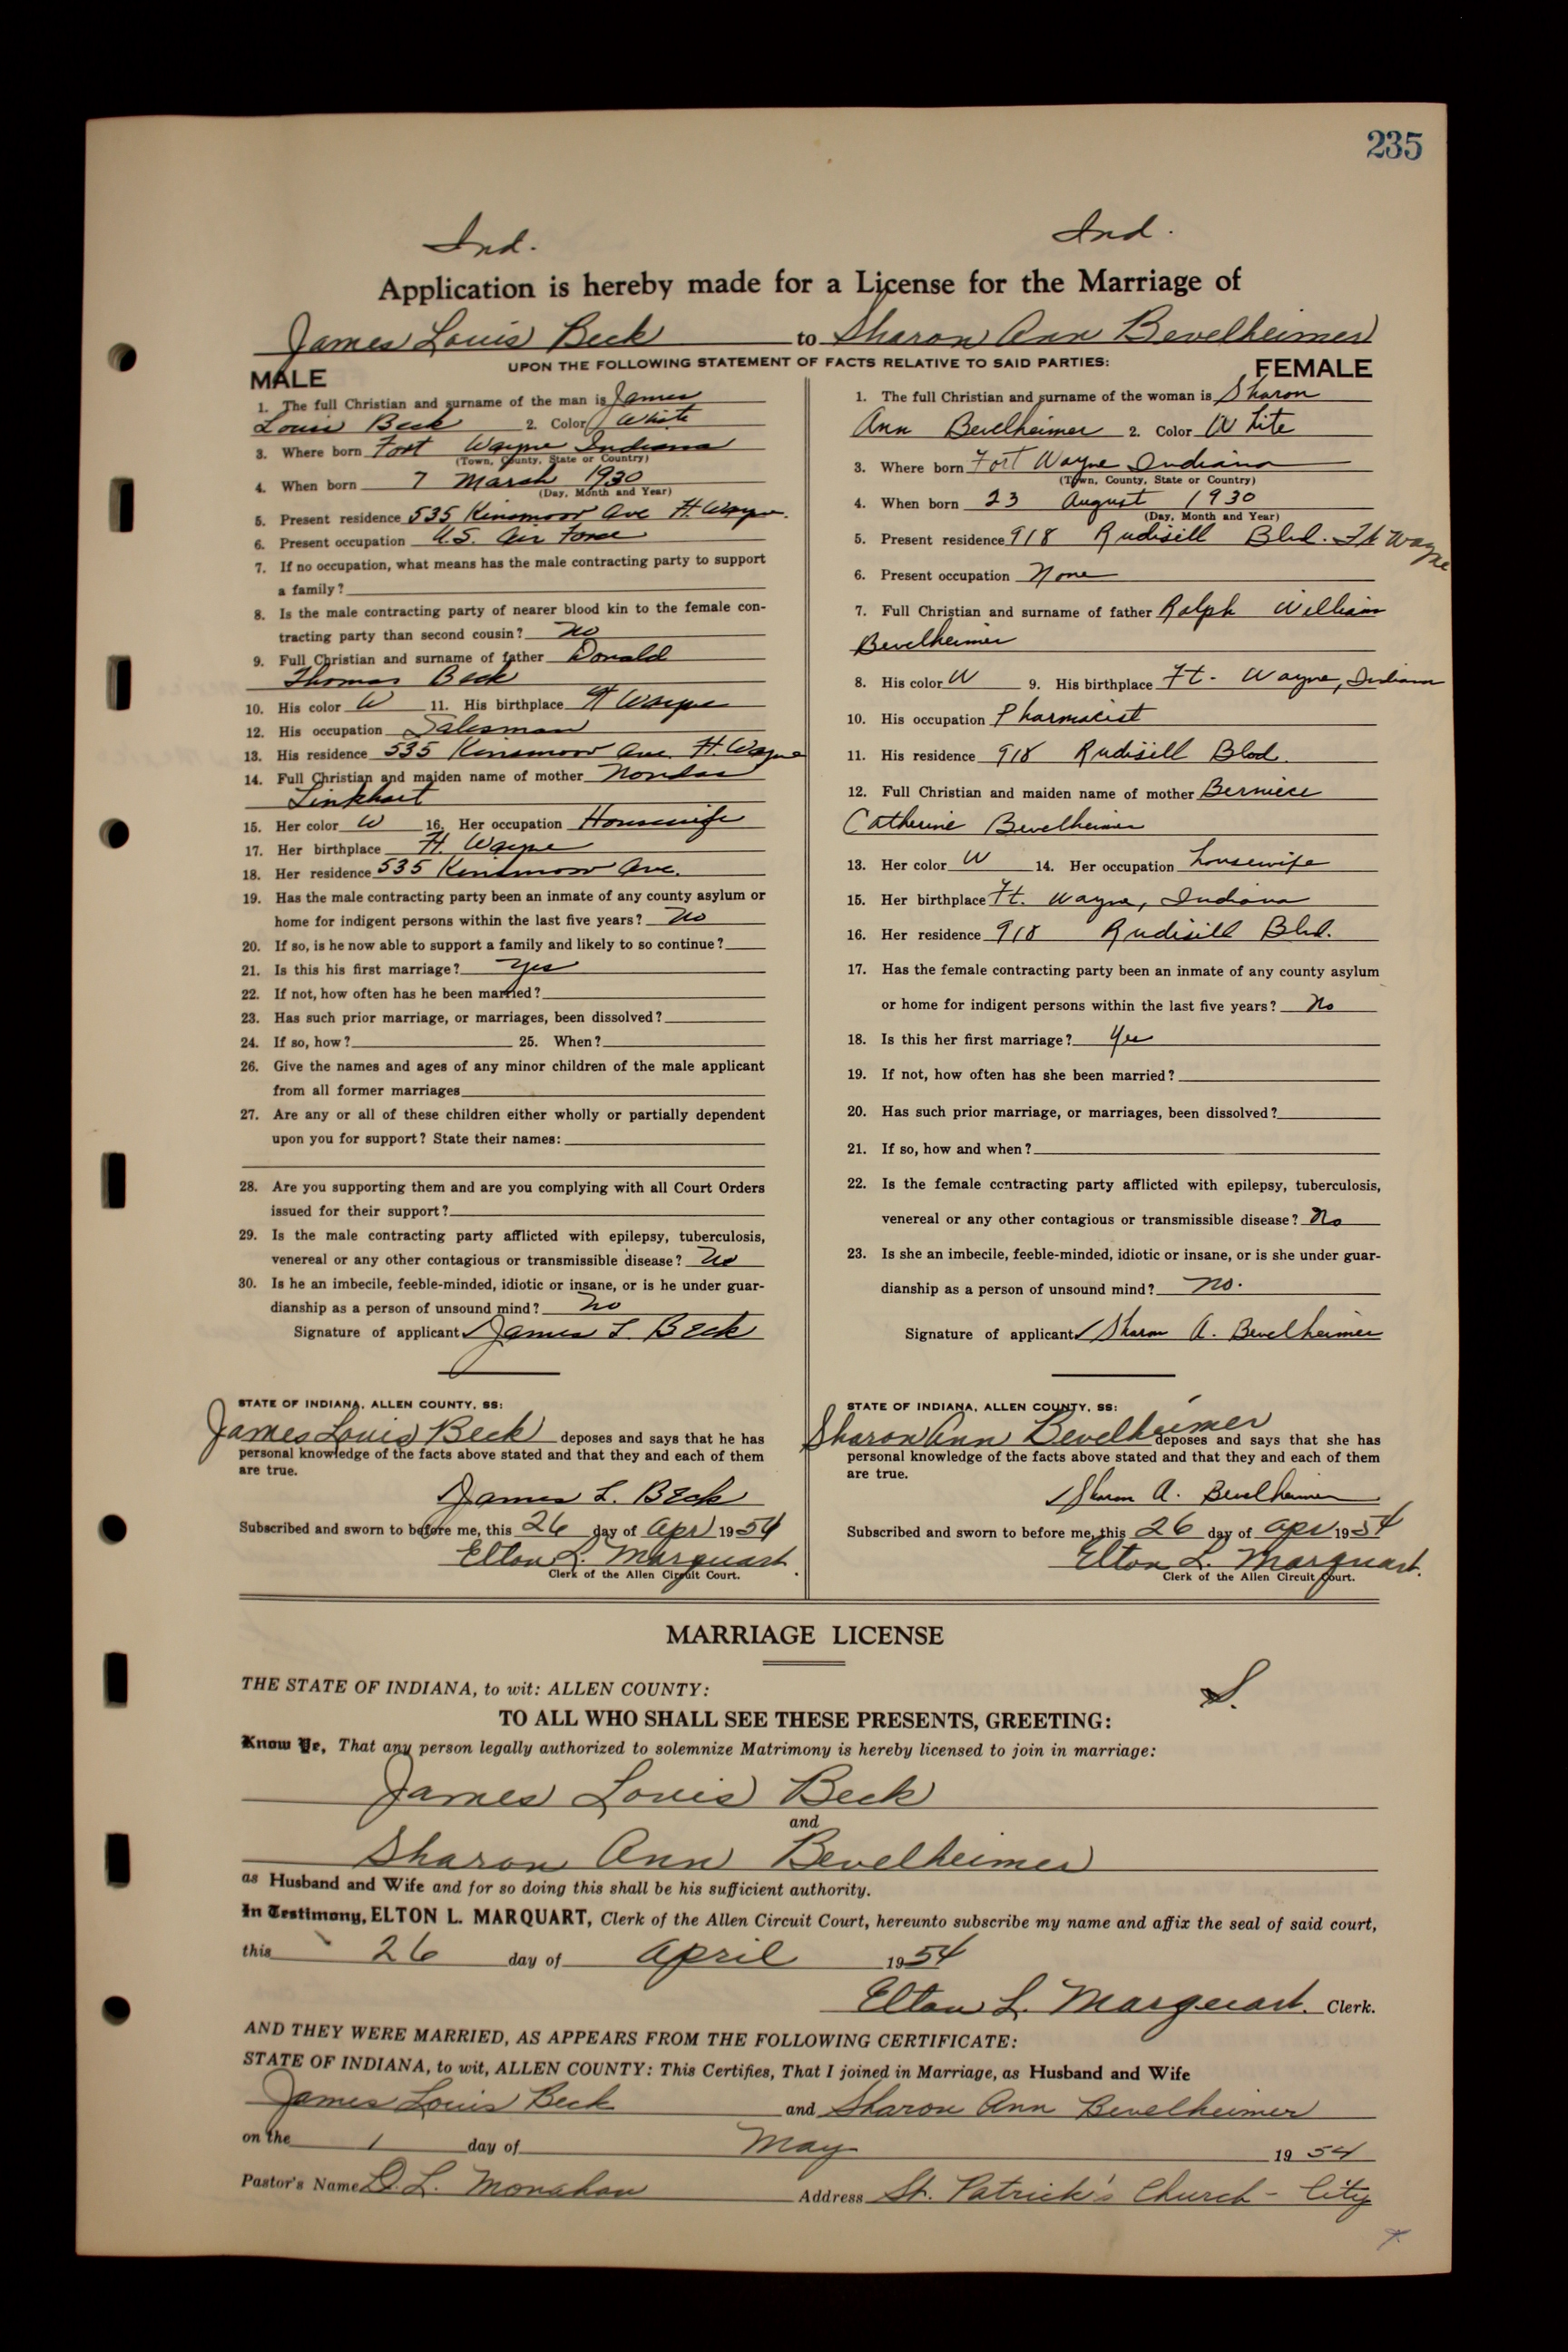 235
Ind. Ind.
Application is hereby made for a License for the Marriage of
James Louis Beck to Sharon Ann Bevelheimer
UPON THE FOLLOWING STATEMENT OF FACTS RELATIVE TO SAID PARTIES:
MALE
1. The full Christian and surname of the man is James
Louis Beck 2. Color White
3. Where born Fort Wayne Indiana
(Town, County, State or Country)
4. When born 7 March 1930
(Day, Month and Year)
5. Present residence 535 Kinsmoor Ave Ft. Wayne.
6. Present occupation U.S. Air Force
7. If no occupation, what means has the male contracting party to support
a family?
8. Is the male contracting party of nearer blood kin to the female con-
tracting party than second cousin? No
9. Full Christian and surname of father Donald
Thomas Beck
10. His color W 11. His birthplace Ft Wayne
12. His occupation Salesman
13. His residence 535 Kinsmoor Ave. Ft. Wayne
14. Full Christian and maiden name of mother
Linkhart
15. Her color W 16. Her occupation Housewife
17. Her birthplace Ft. Wayne
18. Her residence 535 Kinsmoor Ave.
19. Has the male contracting party been an inmate of any county asylum or
home for indigent persons within the last five years? No
20. If so, is he now able to support a family and likely to so continue?
21. Is this his first marriage? Yes
22. If not, how often has he been married?
23. Has such prior marriage, or marriages, been dissolved?
24. If so, how? 25. When?
26. Give the names and ages of any minor children of the male applicant
from all former marriages
27. Are any or all of these children either wholly or partially dependent
upon you for support? State their names:
28. Are you supporting them and are you complying with all Court Orders
issued for their support?
29. Is the male contracting party afflicted with epilepsy, tuberculosis,
venereal or any other contagious or transmissible disease? No
30. Is he an imbecile, feeble-minded, idiotic or insane, or is he under guar-
dianship as a person of unsound mind? No
Signature of applicant James L. Beck
STATE OF INDIANA, ALLEN COUNTY, SS:
James Louis Beck deposes and says that he has
personal knowledge of the facts above stated and that they and each of them
are true.
James L. Beck
Subscribed and sworn to before me, this 26 day of Apr 1954
Elton L. Marquart.
Clerk of the Allen Circuit Court.
FEMALE
1. The full Christian and surname of the woman is Sharon
Ann Bevelheimer 2. Color White
3. Where born Fort Wayne Indiana
(Town, County, State or Country)
4. When born 23 August 1930
(Day, Month and Year)
5. Present residence 918 Rudisill Blvd. Ft Wayne
6. Present occupation None
7. Full Christian and surname of father Ralph William
Bevelheimer
8. His color W 9. His birthplace Ft. Wayne, Indiana
10. His occupation Pharmacist
11. His residence 918 Rudisill Blvd.
12. Full Christian and maiden name of mother Berniece
Catherine Bevelheimer
13. Her color W 14. Her occupation housewife
15. Her birthplace Ft. Wayne, Indiana
16. Her residence 918 Rudisill Blvd.
17. Has the female contracting party been an inmate of any county asylum
or home for indigent persons within the last five years? No
18. Is this her first marriage? Yes
19. If not, how often has she been married?
20. Has such prior marriage, or marriages, been dissolved?
21. If so, how and when?
22. Is the female contracting party afflicted with epilepsy, tuberculosis,
venereal or any other contagious or transmissible disease? No
23. Is she an imbecile, feeble-minded, idiotic or insane, or is she under guar-
dianship as a person of unsound mind? No.
Signature of applicant Sharon A. Bevelheimer
STATE OF INDIANA, ALLEN COUNTY, SS:
Sharon Ann Bevelheimer deposes and says that she has
personal knowledge of the facts above stated and that they and each of them
are true.
Sharon A. Bevelheimer
Subscribed and sworn to before me, this 26 day of Apr 1954
Elton L. Marquart.
Clerk of the Allen Circuit Court.
MARRIAGE LICENSE
THE STATE OF INDIANA, to wit: ALLEN COUNTY:
S.
TO ALL WHO SHALL SEE THESE PRESENTS, GREETING:
Know Ye, That any person legally authorized to solemnize Matrimony is hereby licensed to join in marriage:
James Louis Beck
and
Sharon Ann Bevelheimer
as Husband and Wife and for so doing this shall be his sufficient authority.
In Testimony, ELTON L. MARQUART, Clerk of the Allen Circuit Court, hereunto subscribe my name and affix the seal of said court,
this 26 day of April 1954
Elton L. Marquart. Clerk.
AND THEY WERE MARRIED, AS APPEARS FROM THE FOLLOWING CERTIFICATE:
STATE OF INDIANA, to wit, ALLEN COUNTY: This Certifies, That I joined in Marriage, as Husband and Wife
James Louis Beck and Sharon Ann Bevelheimer
on the 1 day of May 1954
Pastor's Name D. L. Monahan Address St. Patrick's Church - City